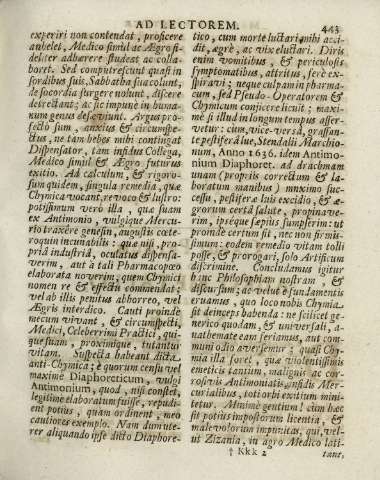 AD LECTOREM.
443
experiri non contendat, proficere
anhelet, Medico simul ac Ægro fi-
deliter adhærere studeat ac colla-
boret. Sed computrescunt quasi in
sordibus suis, Sabbatha sua colunt,
de socordia surgere nolunt, discere
detrectant; ac sic impunè in huma-
num genus desæviunt. Argus pro-
fectò sum, anxius & circumspe-
ctus, ne tam hebes mihi contingat
Dispensator, tam insidus Collega,
Medico simul & Ægro futurus
exitio. Ad calculum, & rigoro-
sum quidem, singula remedia, quæ
Chymica vocant, revoco & lustro:
potissimum verò illa, quæ suam
ex Antimonio, vulgique Mercu-
rio traxêre genesin, augustis cœte-
roquin incunabilis: quæ nisi, pro-
priâ industriâ, oculatus dispensa-
verim, aut à tali Pharmacopœo
elaborata noverim, quem Chymici
nomen re & effectu commendat;
vel ab illis penitus abhorreo, vel
Ægris interdico. Cauti proinde
mecum vivant, & circumspecti,
Medici, Celeberrimi Practici, qui-
que suam, proximique, tutantur
vitam. Suspecta habeant dicta
anti-Chymica; è quorum censu vel
maximè Diaphoreticum, vulgi
Antimonium, quod, nisi constet,
legitimè elaboratum fuisse, repudi-
ent potius, quàm ordinent, meo
cautiores exemplo. Nam dum ute-
rer aliquando ipse dicto Diaphore-
tico, cum morte luctari mihi acci-
dit, ægrè, ac vix eluctari. Diris
enim vomitibus, & periculosis
symptomatibus, attritus, ferè ex-
spiravi; neque culpam in pharma-
cum, sed Pseudo-Operatorem &
Chymicum conjicere licuit; maxi-
mè si illud in longum tempus asser-
vetur: cum, vice-versâ, grassan-
te pestiferâ lue, Stendalii Marchio-
num, Anno 1636. idem Antimo-
nium Diaphoret. ad drachmam
unam (propriis correctum & la-
boratum manibus) maximo suc-
cessu, pestiferæ luis excidio, & æ-
grorum certâ salute, propinave-
rim, ipseque sæpius sumpserim: ut
proinde certum sit, nec non firmis-
simum: eodem remedio vitam tolli
posse, & prorogari, solo Artificum
discrimine. Concludamus igitur
hunc Philosophiam nostram, &
discursum; ac velut è fundamentis
eruamus, quo loco nobis Chymia
sit deinceps habenda: ne scilicet ge-
nerico quodam, & universali, a-
nathemate eam feriamus, aut com-
muni odio aversemur; quasi Chy-
mia illa foret, quæ violentissimis
emeticis tantùm, malignis ac cor-
rosivis Antimoniatis, insidis Mer-
curialibus, totiorbi exitium mini-
tetur. Minimè gentium! cùm hæc
sit potiùs impostorum licentia, &
malevolorum impunitas, qui, vel-
ut Zizania, in agro Medico lati-
† Kkk 2
tant,